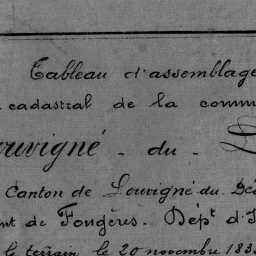 Tableau d'assemblage
cadastral de la comm
ouvigné - du - D
Canton de Louvigné du Dé
nt de Fougères. Dépt d'I
le terrain le 20 novembre 183